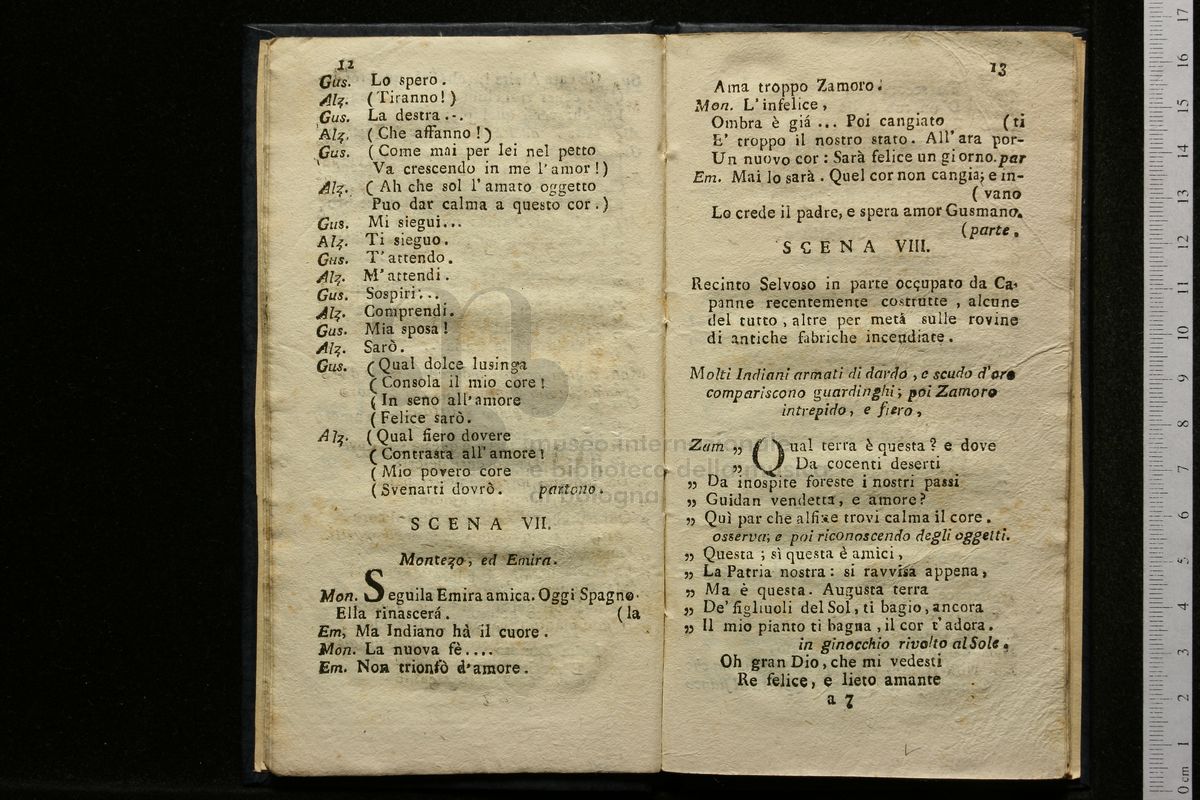 12
Gus. Lo spero.
Alz. (Tiranno!)
Gus. La destra...
Alz. (Che affanno!)
Gus. (Come mai per lei nel petto
Va crescendo in me l'amor!)
Alz. (Ah che sol l'amato oggetto
Puo dar calma a questo cor.)
Gus. Mi siegui...
Alz. Ti sieguo.
Gus. T'attendo.
Alz. M'attendi.
Gus. Sospiri...
Alz. Comprendi.
Gus. Mia sposa!
Alz. Sarò.
Gus. (Qual dolce lusinga
(Consola il mio core!
(In seno all'amore
(Felice sarò.
Alz. (Qual fiero dovere
(Contrasta all'amore!
(Mio povero core
(Svenarti dovrò. partono.
SCENA VII.
Montezo, ed Emira.
Mon. Seguila Emira amica. Oggi Spagno-
Ella rinascerá. (la
Em, Ma Indiano hà il cuore.
Mon. La nuova fè....
Em. Non trionfò d'amore.
13
Ama troppo Zamoro.
Mon. L'infelice,
Ombra è giá ... Poi cangiato (ti
E' troppo il nostro stato. All'ara por-
Un nuovo cor: Sarà felice un giorno. par
Em. Mai lo sarà. Quel cor non cangia; e in-
(vano
Lo crede il padre, e spera amor Gusmano.
(parte.
SCENA VIII.
Recinto Selvoso in parte occupato da Ca-
panne recentemente costrutte, alcune
del tutto, altre per metá sulle rovine
di antiche fabriche incendiate.
Molti Indiani armati di dardo, e scudo d'oro
compariscono guardinghi; poi Zamoro
intrepido, e fiero,
Zam „ Qual terra è questa? e dove
„ Da cocenti deserti
„ Da inospite foreste i nostri passi
„ Guidan vendetta, e amore?
„ Quì par che alfine trovi calma il core.
osserva; e poi riconoscendo degli oggetti.
„ Questa; sì questa è amici,
„ La Patria nostra: si ravvisa appena,
„ Ma è questa. Augusta terra
„ De' figliuoli del Sol, ti bagio, ancora
„ Il mio pianto ti bagna, il cor t'adora.
in ginocchio rivolto al Sole.
Oh gran Dio, che mi vedesti
Re felice, e lieto amante
a 7
museo internazionale
e biblioteca della musica
di bologna
0 cm 1 2 3 4 5 6 7 8 9 10 11 12 13 14 15 16 17